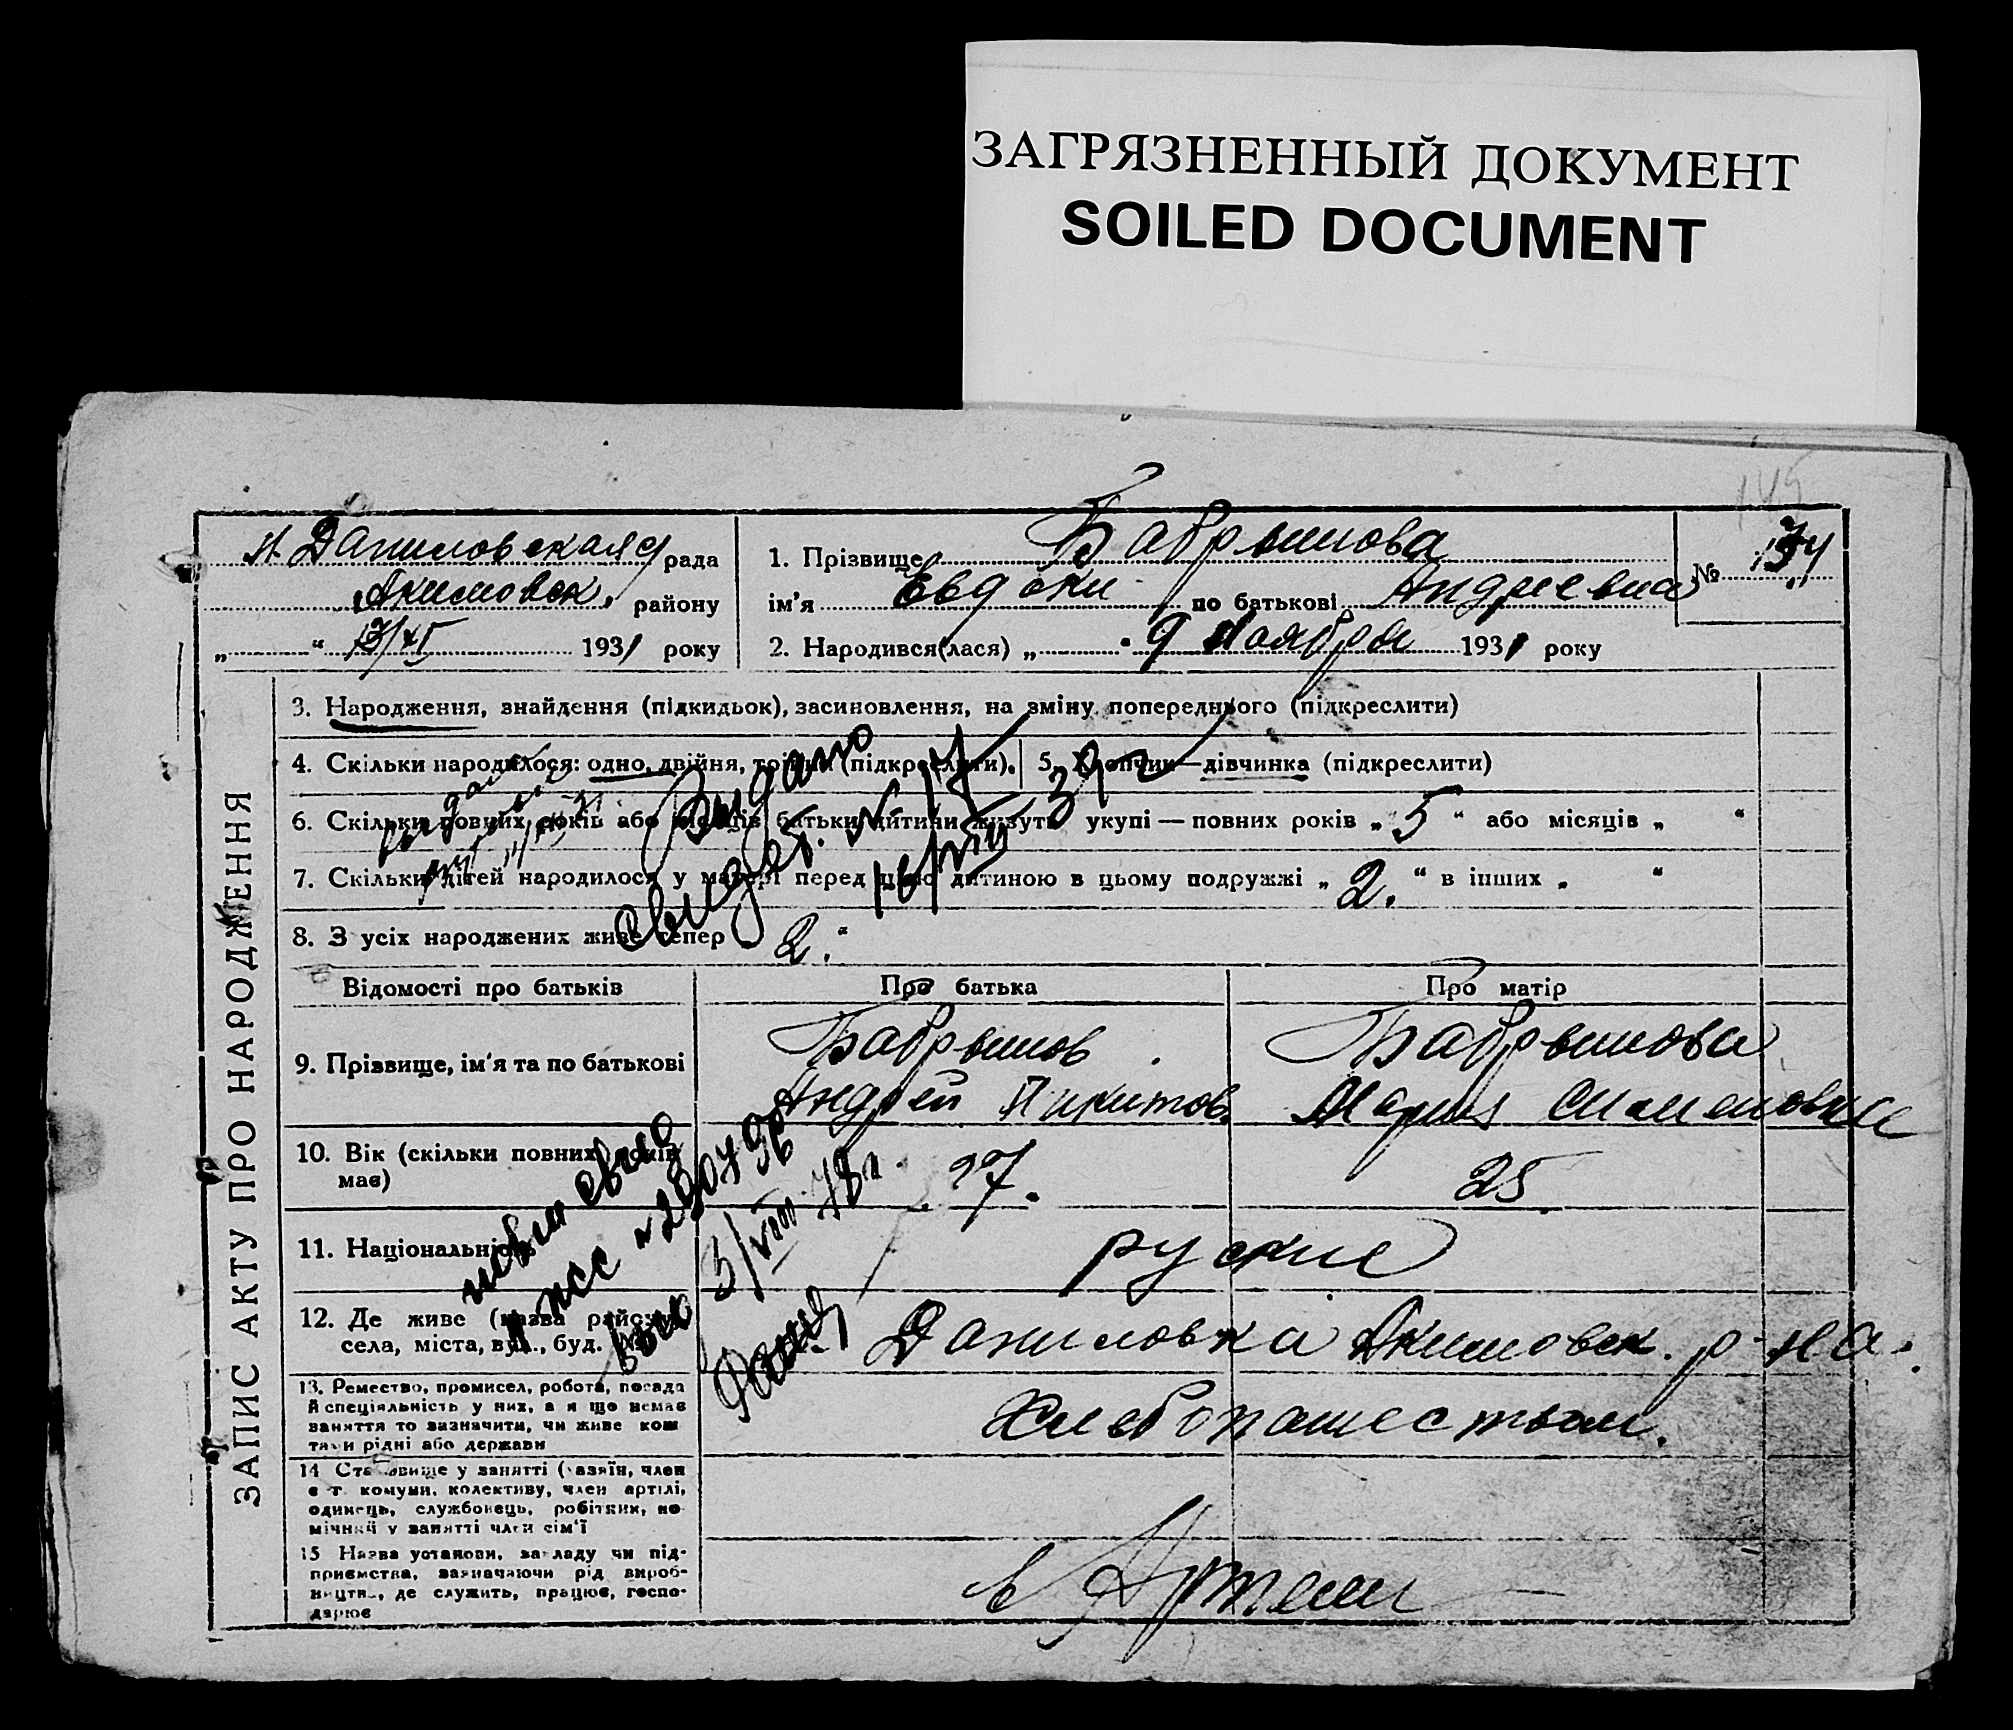 ЗАГРЯЗНЕННЫЙ ДОКУМЕНТ
SOILED DOCUMENT
145
Н. Даниловская рада
Акимовск. району
„ “ 13/XI 1931 року
1. Прізвище Бабрышова
ім'я Евдоки по батькові Андреевна
2. Народився(лася) „ “ 9 Ноября 1931 року
№
ЗАПИС АКТУ ПРО НАРОДЖЕННЯ
3. Народження, знайдення (підкидьок), засиновлення, на зміну попереднього (підкреслити)
4. Скільки народилося: одно, двійня, тройня (підкреслити). 5. Хлопчик—дівчинка (підкреслити)
6. Скільки повних років або місяців батьки дитини живуть укупі — повних років „ 5 “ або місяців „ “
7. Скільки дітей народилося у матері перед цією дитиною в цьому подружжі „ 2. “ в інших „ “
8. З усіх народжених живе тепер 2. “
Видано
свидет. № 17
16/VIII 39 г
Відомості про батьків
Про батька
Про матір
9. Прізвище, ім'я та по батькові
Бабрышов
Андрей Никитов.
Бабрышова
Мария Симеоновна
10. Вік (скільки повних років має)
27.
25
11. Національність
руские
12. Де живе (назва району, села, міста, вул., буд.
Даниловка Акимовск. р-на.
13. Ремество, промисел, робота, посада
й спеціяльність у них, а я що немає
заняття то зазначити, чи живе кош
тами рідні або держави
Хлебопашеством.
14 Становище у занятті (хазяїн, член
с г. комуни, колективу, член артілі,
одинець, службовець, робітник, по-
мічний у занятті член сім'ї
15 Назва установи, закладу чи під-
приємства, зазначаючи рід вироб-
ництва, де служить, працює, госпо-
дарює
в Артели
3/VIII 78 г.